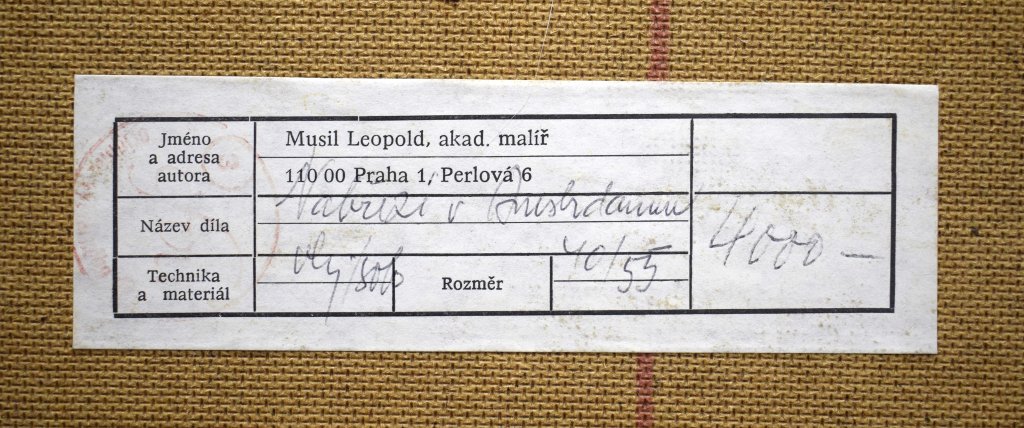 Jméno
a adresa
autora
Musil Leopold, akad. malíř
110 00 Praha 1, Perlová 6
Název díla
Nábřeží v Amsterdamu
4000 —
Technika
a materiál
Rozměr
40/55